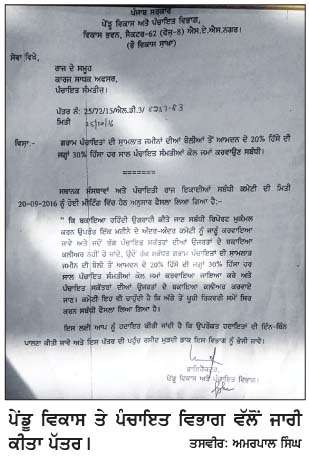 ਪੰਜਾਬ ਸਰਕਾਰ
ਪੇਂਡੂ ਵਿਕਾਸ ਅਤੇ ਪੰਚਾਇਤ ਵਿਭਾਗ,
ਵਿਕਾਸ ਭਵਨ, ਸੈਕਟਰ-62 (ਫੇਜ਼-8) ਐਸ.ਏ.ਐਸ.ਨਗਰ।
(ਭੌਂ ਵਿਕਾਸ ਸ਼ਾਖਾ)
ਸੇਵਾ ਵਿਖੇ,
ਰਾਜ ਦੇ ਸਮੂਹ
ਕਾਰਜ ਸਾਧਕ ਅਫਸਰ,
ਪੰਚਾਇਤ ਸੰਮਤੀਜ਼।
ਪੱਤਰ ਨੰ: 25/72/15/ਐਲ.ਡੀ.3/
ਮਿਤੀ
ਵਿਸ਼ਾ:- ਗਰਾਮ ਪੰਚਾਇਤਾਂ ਦੀ ਸ਼ਾਮਲਾਤ ਜ਼ਮੀਨਾਂ ਦੀਆਂ ਬੋਲੀਆਂ ਤੋਂ ਆਮਦਨ ਦੇ 20% ਹਿੱਸੇ ਦੀ
ਜਗ੍ਹਾਂ 30% ਹਿੱਸਾ ਹਰ ਸਾਲ ਪੰਚਾਇਤ ਸੰਮਤੀਆਂ ਕੋਲ ਜਮਾਂ ਕਰਵਾਉਣ ਸਬੰਧੀ।
=======
ਸਥਾਨਕ ਸੰਸਥਾਵਾਂ ਅਤੇ ਪੰਚਾਇਤੀ ਰਾਜ ਇਕਾਈਆਂ ਸਬੰਧੀ ਕਮੇਟੀ ਦੀ ਮਿਤੀ
20-09-2016 ਨੂੰ ਹੋਈ ਮੀਟਿੰਗ ਵਿੱਚ ਹੇਠ ਅਨੁਸਾਰ ਫੈਸਲਾ ਲਿਆ ਗਿਆ ਹੈ:-
" ਕਿ ਬਕਾਇਆ ਰਹਿੰਦੀ ਉਗਰਾਹੀ ਕੀਤੇ ਜਾਣ ਸਬੰਧੀ ਰਿਪੋਰਟ ਮੁਕੰਮਲ
ਕਰਨ ਉਪਰੰਤ ਇੱਕ ਮਹੀਨੇ ਦੇ ਅੰਦਰ-ਅੰਦਰ ਕਮੇਟੀ ਨੂੰ ਜਾਣੂੰ ਕਰਵਾਇਆ
ਜਾਵੇ ਅਤੇ ਜਦੋਂ ਤੱਕ ਪੰਚਾਇਤ ਸਕੱਤਰਾਂ ਦੀਆਂ ਉਜਰਤਾਂ ਦੇ ਬਕਾਇਆ
ਕਲੀਅਰ ਨਹੀਂ ਹੋ ਜਾਂਦੇ, ਉਦੋਂ ਤੱਕ ਸਬੰਧਤ ਗਰਾਮ ਪੰਚਾਇਤਾਂ ਦੀ ਸ਼ਾਮਲਾਤ
ਜ਼ਮੀਨ ਦੀ ਬੋਲੀ ਤੋਂ ਆਮਦਨ ਦੇ 20% ਹਿੱਸੇ ਦੀ ਜਗ੍ਹਾਂ 30% ਹਿੱਸਾ ਹਰ
ਸਾਲ ਪੰਚਾਇਤ ਸੰਮਤੀਆਂ ਕੋਲ ਜਮਾਂ ਕਰਵਾਇਆ ਜਾਇਆ ਕਰੇ ਅਤੇ
ਪੰਚਾਇਤ ਸਕੱਤਰਾਂ ਦੀਆਂ ਉਜਰਤਾਂ ਦੇ ਬਕਾਇਆ ਕਲੀਅਰ ਕਰਵਾਏ
ਜਾਣ। ਕਮੇਟੀ ਇਹ ਵੀ ਚਾਹੁੰਦੀ ਹੈ ਕਿ ਅੱਗੇ ਤੋਂ ਪੂਰੀ ਰਿਕਵਰੀ ਸਮੇਂ ਸਿਰ ਕਰਨ
ਸਬੰਧੀ ਫੈਸਲਾ ਲਿਆ ਗਿਆ ਹੈ।
ਇਸ ਲਈ ਆਪ ਨੂੰ ਹਦਾਇਤ ਕੀਤੀ ਜਾਂਦੀ ਹੈ ਕਿ ਉਪਰੋਕਤ ਹਦਾਇਤਾਂ ਦੀ ਇੰਨ-ਬਿੰਨ
ਪਾਲਣਾ ਕੀਤੀ ਜਾਵੇ ਅਤੇ ਇਸ ਪੱਤਰ ਦੀ ਪਹੁੰਚ ਰਸੀਦ ਮੁੜਦੀ ਡਾਕ ਇਸ ਵਿਭਾਗ ਨੂੰ ਭੇਜੀ ਜਾਵੇ।
ਡਾਇਰੈਕਟਰ,
ਪੇਂਡੂ ਵਿਕਾਸ ਅਤੇ ਪੰਚਾਇਤ ਵਿਭਾਗ।
ਪੇਂਡੂ ਵਿਕਾਸ ਤੇ ਪੰਚਾਇਤ ਵਿਭਾਗ ਵੱਲੋਂ ਜਾਰੀ
ਕੀਤਾ ਪੱਤਰ।
ਤਸਵੀਰ: ਅਮਰਪਾਲ ਸਿੰਘ